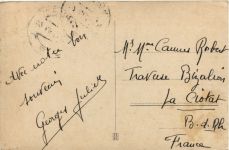 Avec notre bon
souvenir
Georges Juliette
Mr Mme Camus Robert
Traverse
La Ciotat
B. d. Rh
France